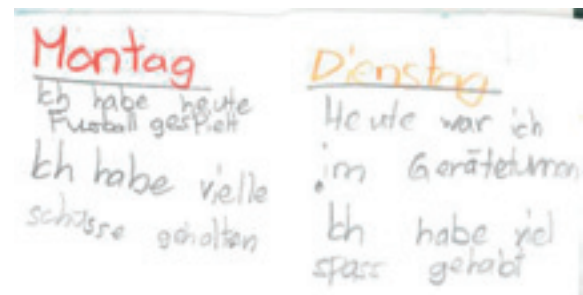 Montag
Ich habe heute
Fussball gespielt
Ich habe vielle
schüsse gehalten
Dienstag
Heute war ich
im Geräteturnen
Ich habe viel
spass gehabt